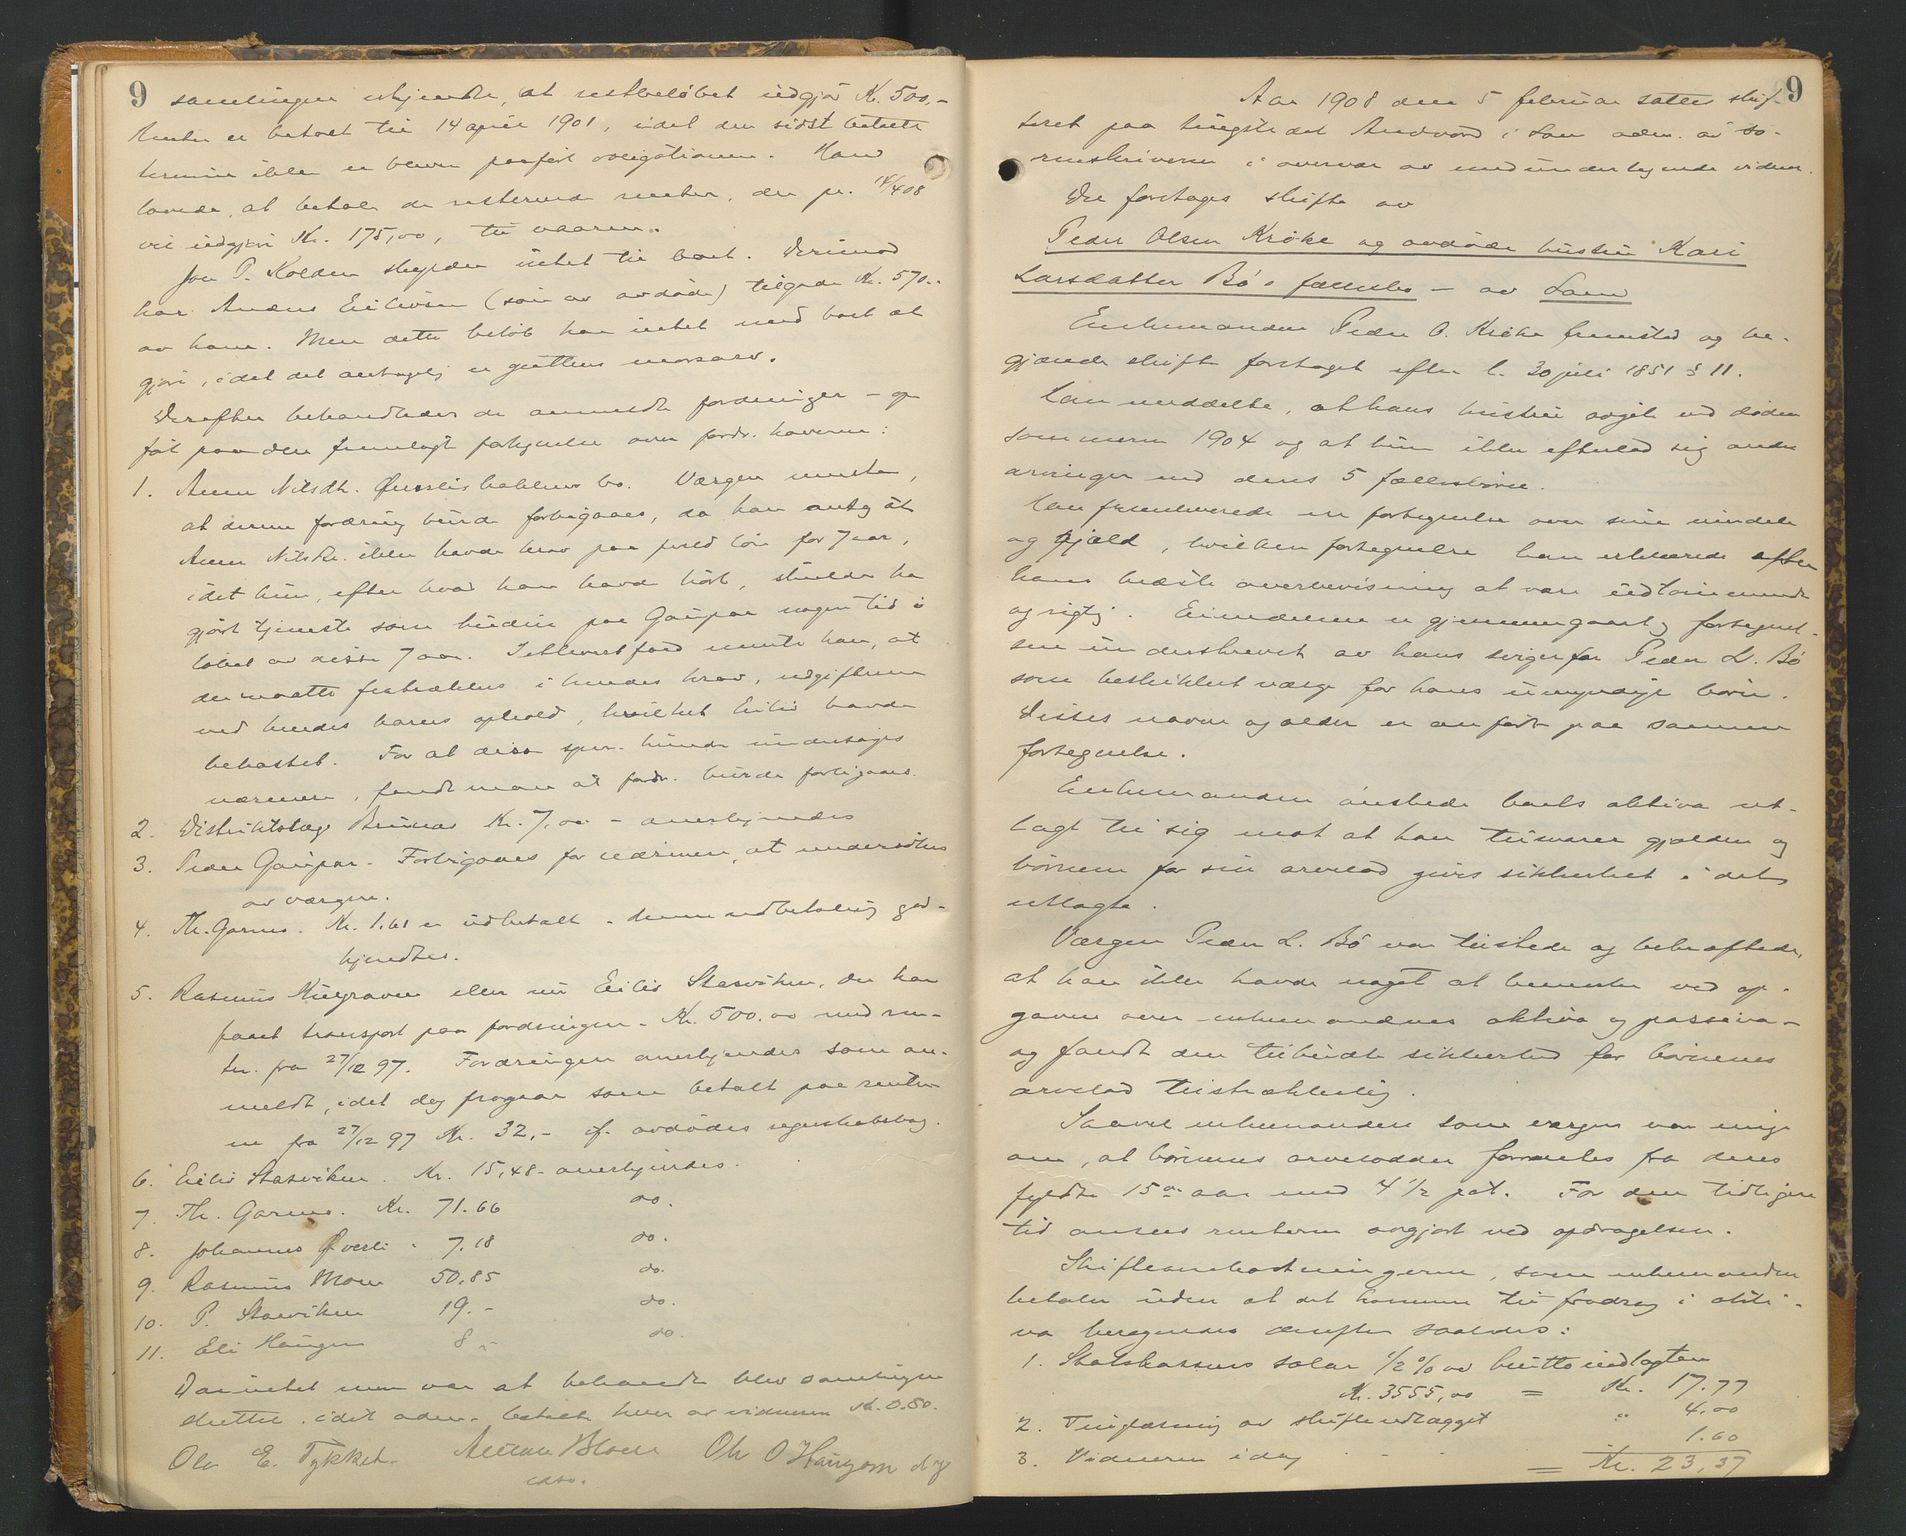 9
samlingen erkjendte, at restbeløbet udgjør Kr. 500,-
Renten er betalt til 14 april 1901, idet den sidst betalte
termin ikke er bleven paaført obligationen. Han
lovede, at betale de resterende renter, der pr. 14/4 08
vil udgjøre Kr. 175,00, til vaaren.
Jon P. Kolden skylder intet til boet. Derimod
har Anders Eilivsen (søn av avdøde) tilgode Kr. 570..
av ham. Men dette beløb har intet med boet at
gjøre, idet det antagelig er guttens morsarv.
Derefter behandledes de anmeldte fordringer - op
ført paa den fremlagte fortegnelse over fordr. haverne:
1. Anne Nilsdtr. Øverlisbakkens bo. Værgen mente,
at denne fordring burde forbigaaes, da han antog at
Anne Nilsdtr. ikke havde krav paa fuld løn for 7 aar,
idet hun, efter hvad han havde hørt, skulde ha
gjort tjeneste som budeie paa Gaupar nogen tid i
løbet av disse 7 aar. I ethvert fald mente han, at
der maatte fratrækkes i hendes krav, udgifterne
ved hendes barns ophold, hvilket Eiliv havde
bekostet. For at disse spm. kunde undersøges
nærmere, fandt man at fordr. burde forbigaaes.
2. Distriktslæge Brunæs Kr. 7,00 - anerkjendes
3. Peder Gaupar. Forbigaaes for nærmere at undersøkes
av værgen.
4. Th. Garmo. Kr. 1.61 er udbetalt - denne udbetaling god-
kjendtes.
5. Rasmus Kulgraven eller nu Eiliv Stasviken, der har
faaet transport paa fordringen. Kr. 500.00 med ren-
ter fra 27/12 97. Fordringen anerkjendes som an-
meldt, idet dog fragaar som betalt paa renter-
ne fra 27/12 97 Kr. 32,- jf. avdødes regnskabsbog.
6. Eiliv Stasviken. Kr. 15,48 - anerkjendes.
7. Th. Garmo. Kr. 71.66 do.
8. Johannes Øverli - 7.18 do.
9. Rasmus Moen 50.85 do.
10. P. Stasviken 19.- do.
11. Eli Haugen 8,- do.
Da intet mere var at behandle blev samlingen
sluttet, idet adm. betalte hver av vidnerne Kr. 0.80.
Ola E. Tykket. Bloem Ole O Haugom
cdsv.
9
Aar 1908 den 5 februar sattes skif-
teret paa tingstedet Andvord i Lom adm. av so-
renskriveren i overvær av medundertegnede vidner.
Der foretages skifte av
Peder Olsen Krøke og avdøde hustru Kari
Larsdatter Bø's fællesbo - av Lom
Enkemanden Peder O. Krøke fremstod og be-
gjærede skifte foretaget efter l. 30 juli 1851 § 11.
Han meddelte, at hans hustru avgik ved døden
sommeren 1904 og at hun ikke efterlod sig andre
arvinger end deres 5 fællesbørn.
Han fremleverede en fortegnelse over sine eiendele
og gjæld, hvilken fortegnelse han erklærede efter
hans bedste overbevisning at være udtømmende
og rigtig. Eiendelene er gjennemgaaet og fortegnel-
sen underskrevet av hans svigerfar Peder L. Bø
som beskikket værge for hans umyndige børn.
Disses navne og alder er anført paa samme
fortegnelse.
Enkemanden ønskede boets aktiva ut-
lagt til sig mot at han tilsvarer gjælden og
børnene for sin arvelod gives sikkerhet i det
utlagte.
Værgen Peder L. Bø var tilstede og bekræftede,
at han ikke havde noget at bemerke ved op-
gaven over enkemandens aktiva og passiva -
og fandt den tilbudte sikkerhed for børnenes
arvelod tilstrækkelig.
Saavel enkemanden som værgen var enige
om, at børnenes arvelodder forrentes fra deres
fyldte 15de aar med 4 1/2 pct. For den tidligere
tid ansees renterne avgjort ved opdragelsen.
Skifteomkostningerne, som enkemanden
betaler uden at det kommer til fradrag i akti-
va beregnedes derefter saaledes:
1. Statskassens salær 1/2 % av bruttoindtægten
Kr. 3555,00 = Kr. 17.77
2. Tinglæsning av skifteudlægget " 4.00
3. Vidneren i dag - - 1.60
= Kr. 23,37